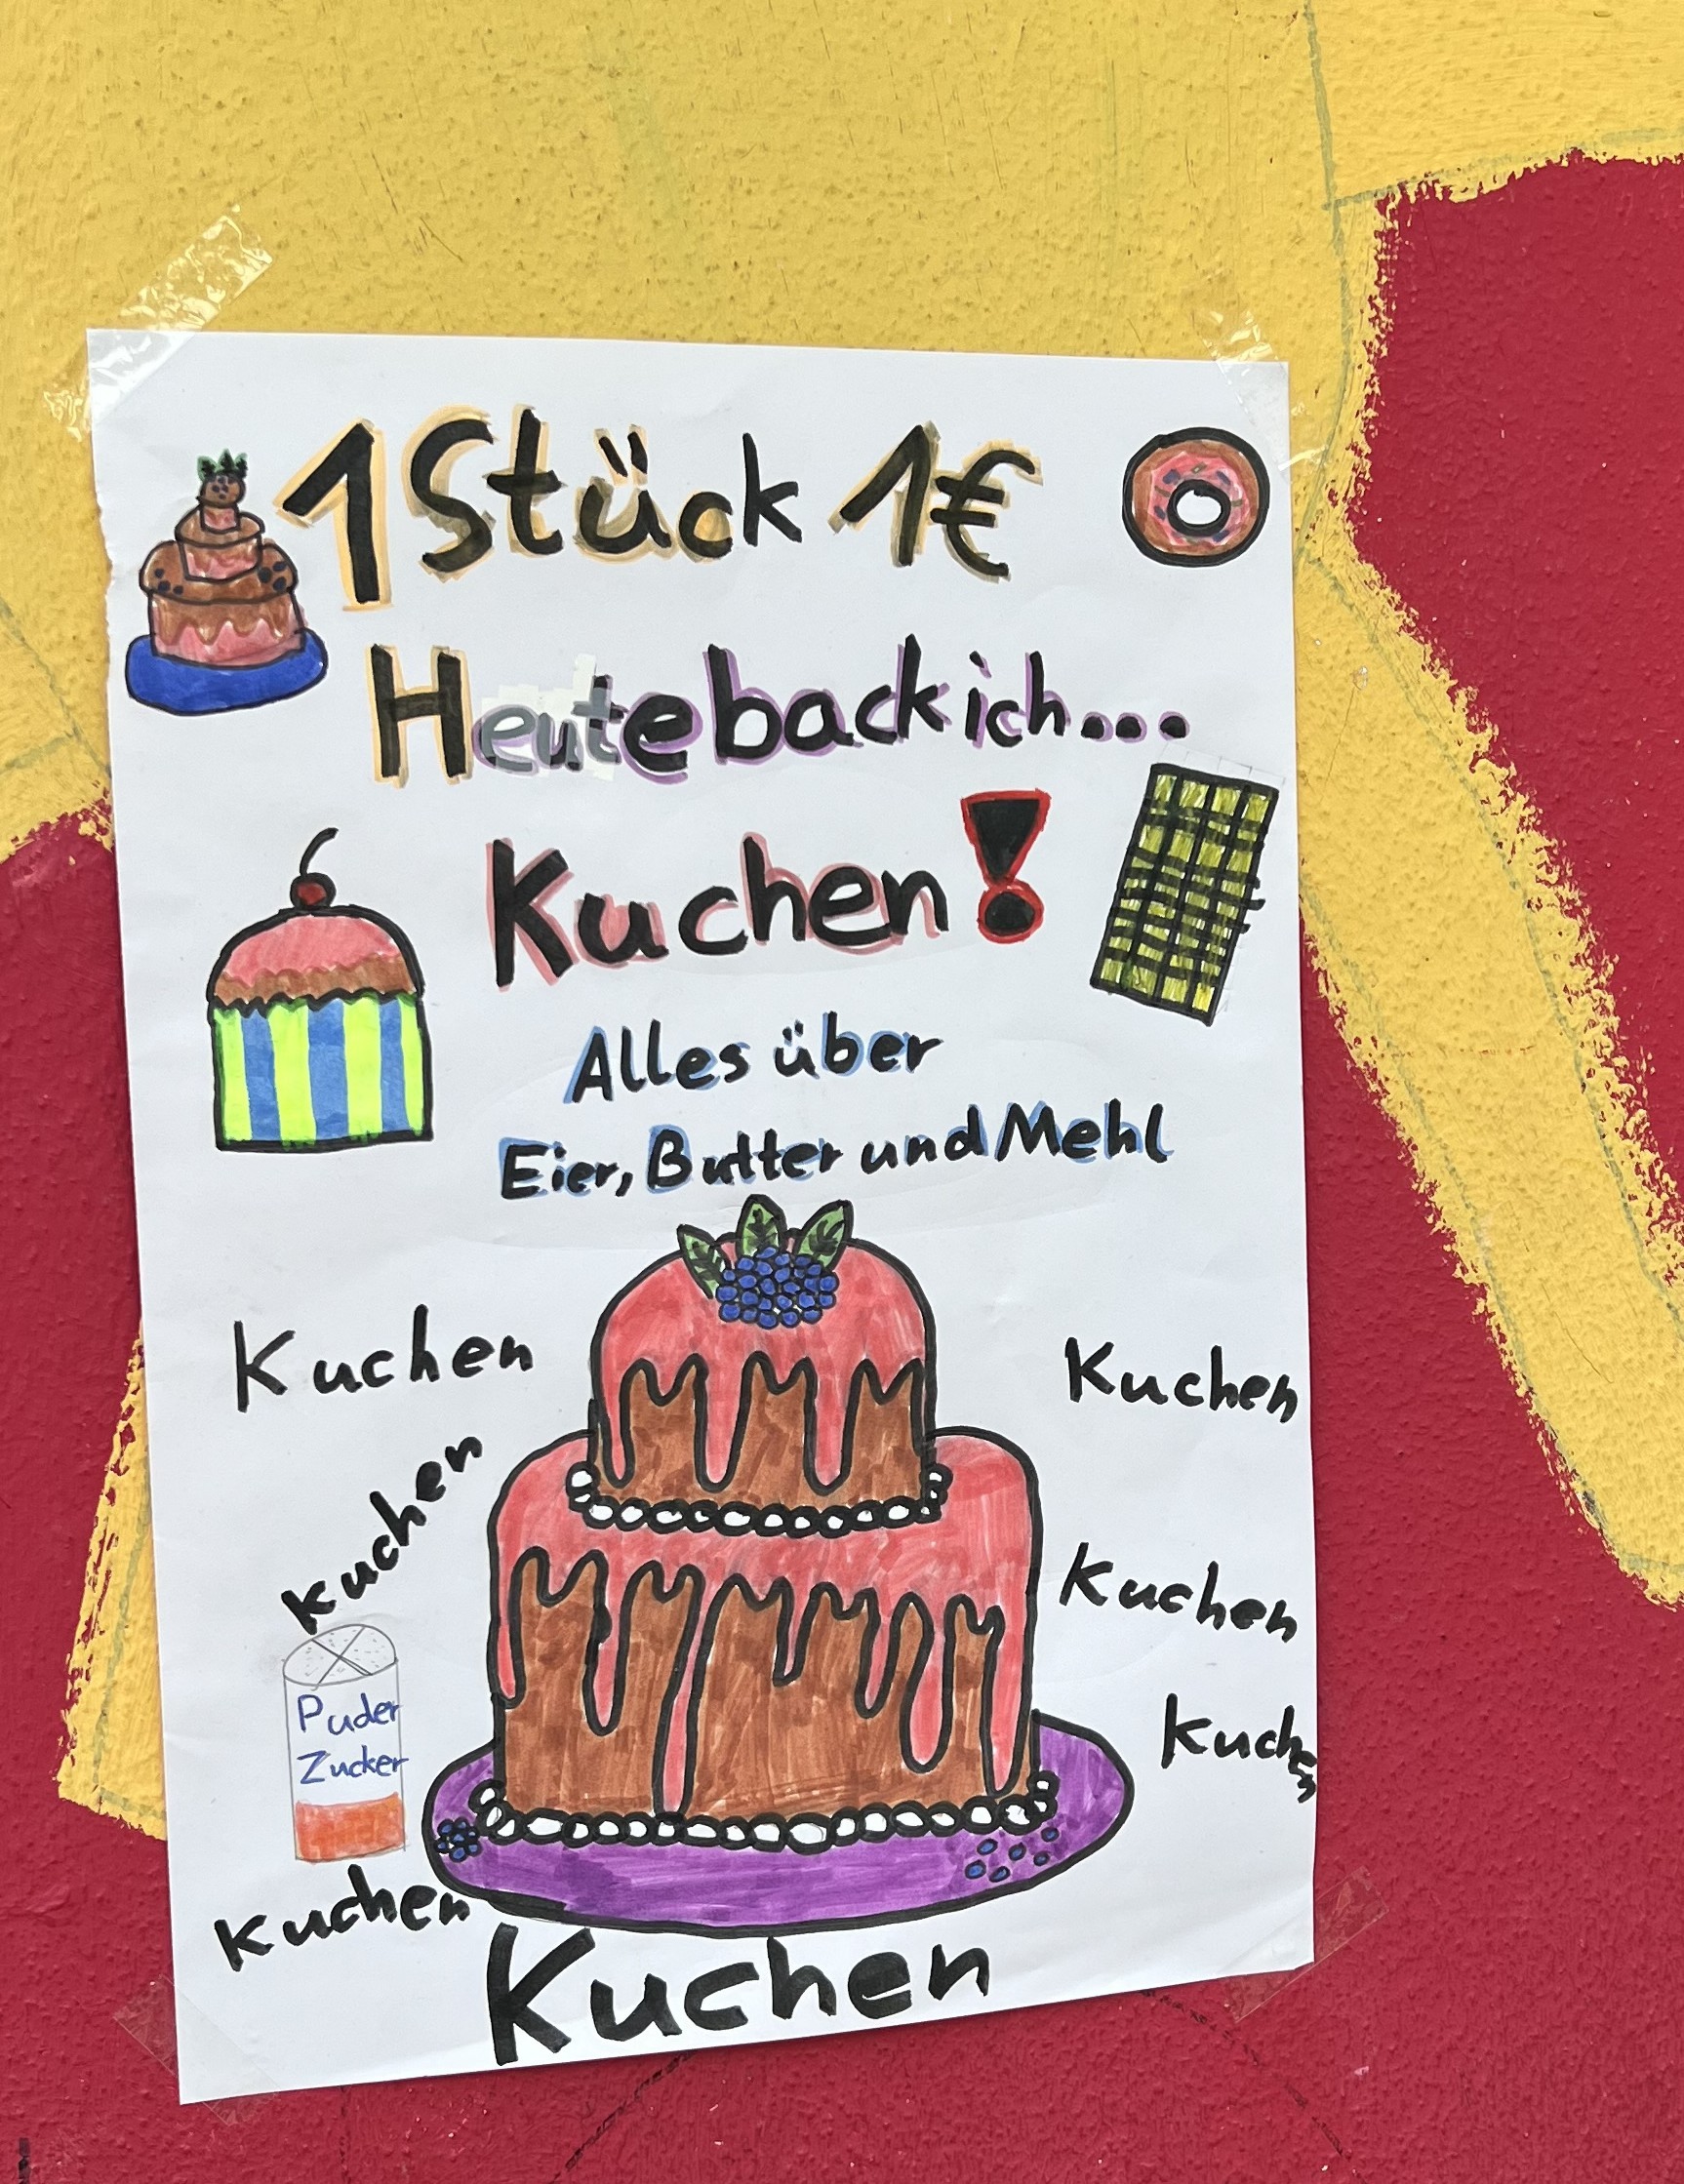 1 Stück 1€
Heute back ich...
Kuchen!
Alles über
Eier, Butter und Mehl
Kuchen
Kuchen
Kuchen
Kuchen
Puder
Zucker
Kuchen
Kuchen
Kuchen